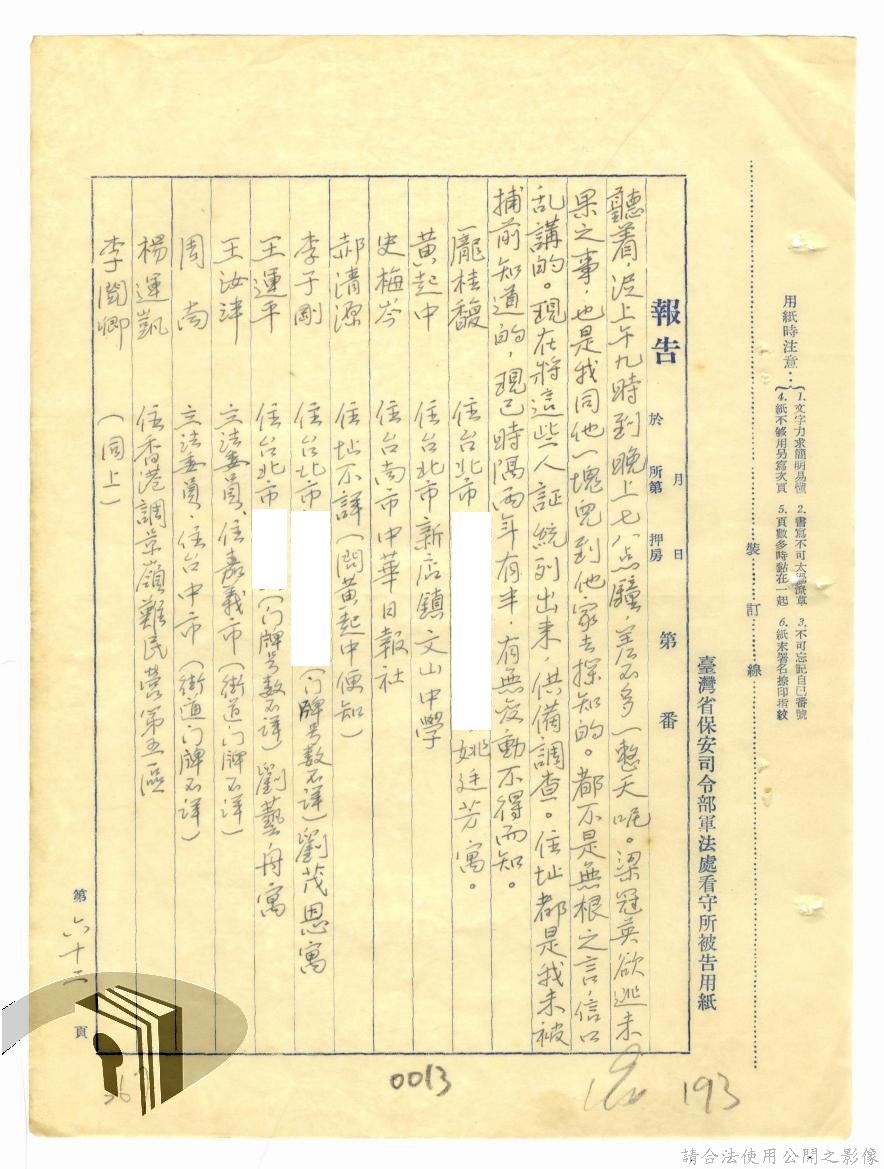 用紙時注意：
1. 文字力求簡明易懂 2. 書寫不可太過潦草 3. 不可忘記自己番號
4. 紙不够用另寫次頁 5. 頁數多時黏在一起 6. 紙末署名捺印指紋
裝訂線
臺灣省保安司令部軍法處看守所被告用紙
報告 於 月 日 所第 押房 第 番
聽着，從上午九時到晚上七八点鐘，差不多一整天呢。梁冠英欲逃未
果之事，也是我同他一塊兒到他家去探知的。都不是無根之言，信口
乱講的。現在將這些人証統列出来，供備調查。住址都是我未被
捕前知道的，現已時隔兩年有半，有無变動不得而知。
龐桂馥 住台北市 姚廷芳寓。
黃起中 住台北市新店鎮文山中學
史梅岑 住台南市中華日報社
郝清源 住址不詳（問黃起中便知）
李子剛 住台北市 （门牌号数不详）劉茂恩寓
王運平 住台北市 （门牌号数不详）劉藝舟寓
王汝津 立法委員、住嘉義市（街道门牌不详）
周南 立法委員，住台中市（街道门牌不详）
楊運凱 住香港調景嶺難民營第五區
李閬卿 （同上）
第六十二頁
0013
193
請合法使用公開之影像